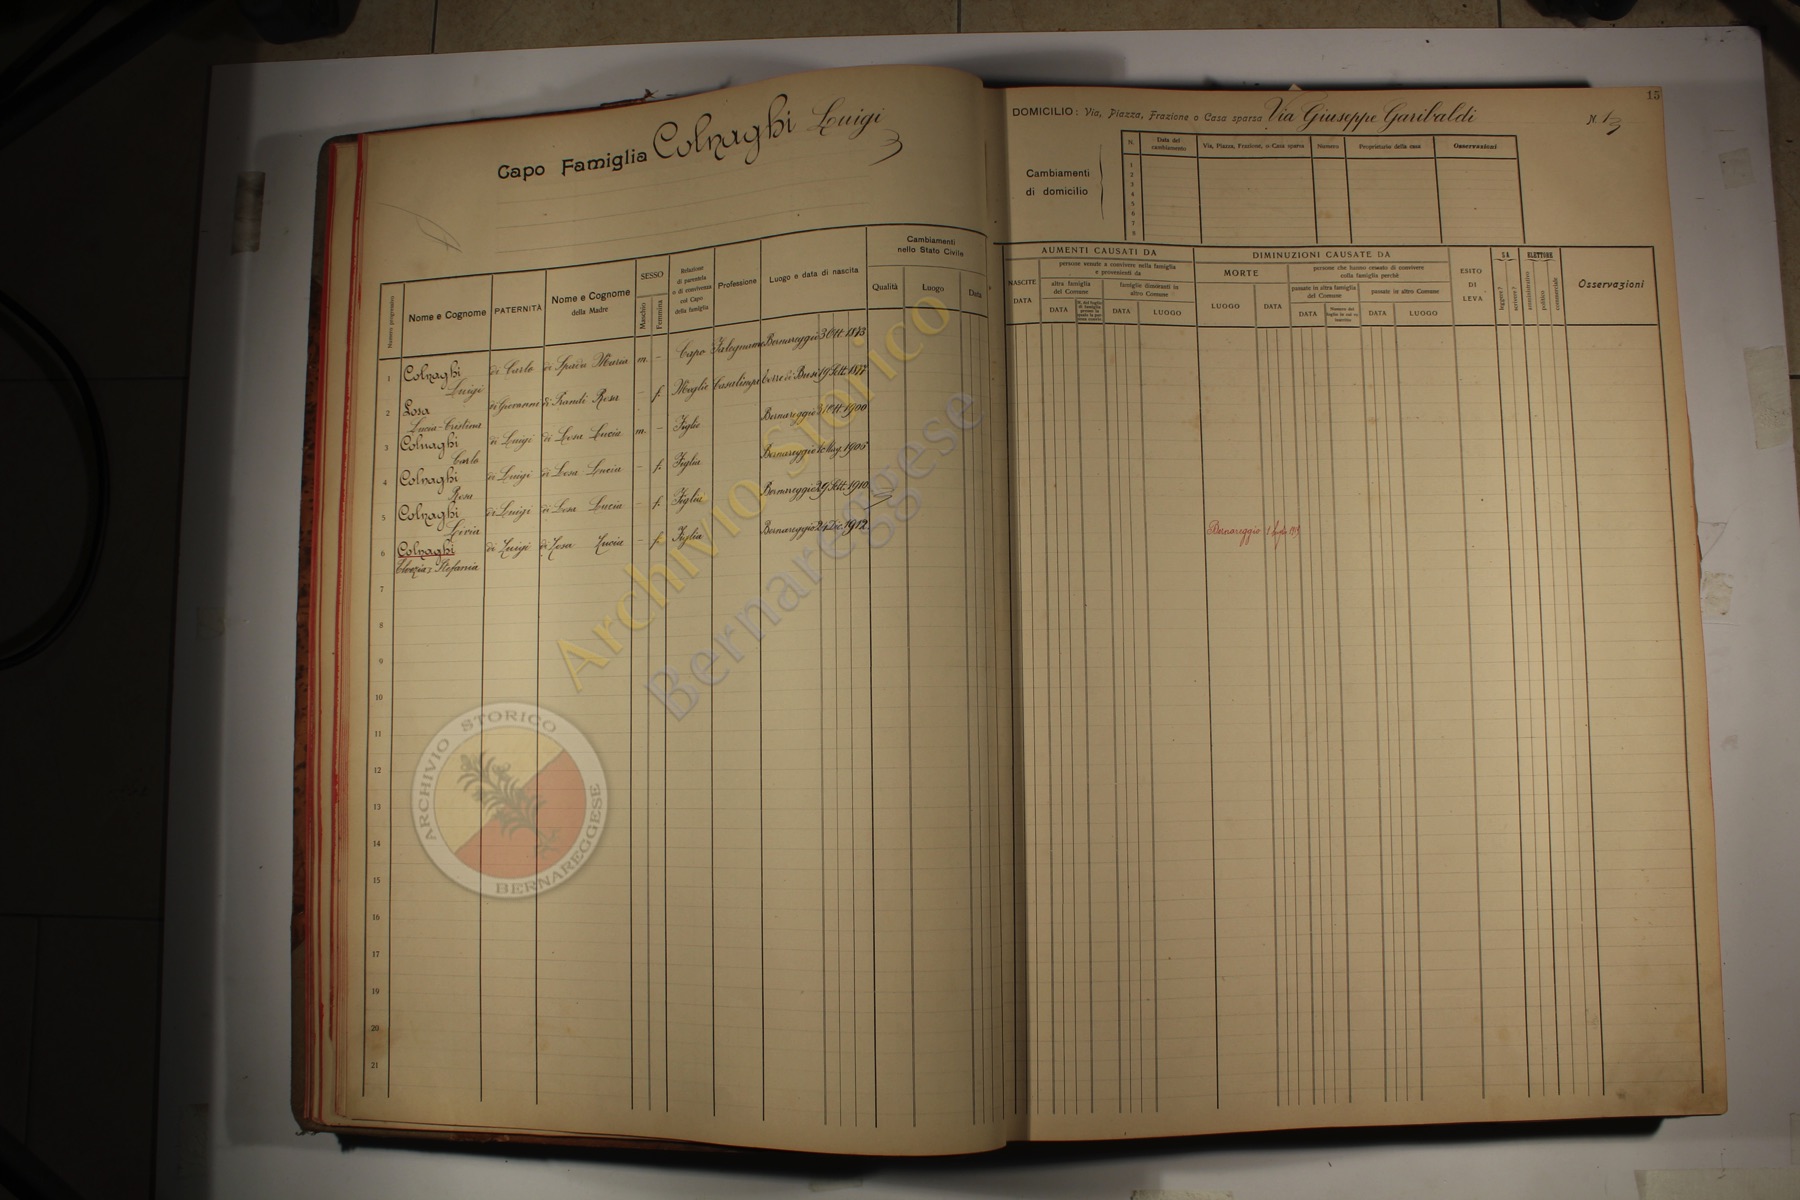 Capo Famiglia Colnaghi Luigi
3
15
DOMICILIO: Via, Piazza, Frazione o Casa sparsa Via Giuseppe Garibaldi N. 13
Cambiamenti di domicilio
N. Data del cambiamento Via, Piazza, Frazione, o Casa sparsa Numero Proprietario della casa Osservazioni
1
2
3
4
5
6
7
8
Numero progressivo
Nome e Cognome
PATERNITÀ
Nome e Cognome della Madre
SESSO
Maschio
Femmina
Relazione di parentela o di convivenza col Capo della famiglia
Professione
Luogo e data di nascita
Cambiamenti nello Stato Civile
Qualità
Luogo
Data
AUMENTI CAUSATI DA
NASCITE
DATA
persone venute a convivere nella famiglia e provenienti da
altra famiglia del Comune
DATA
famiglie dimoranti in altro Comune
DATA
LUOGO
DIMINUZIONI CAUSATE DA
MORTE
LUOGO
DATA
persone che hanno cessato di convivere colla famiglia perchè
passate in altra famiglia del Comune
DATA
passate in altro Comune
DATA
LUOGO
ESITO DI LEVA
SA
leggere?
scrivere?
ELETTORE
amministrativo
politico
commerciale
Osservazioni
1 Colnaghi Luigi di Carlo di Spada Maria m. – Capo Falegname Bernareggio 3 Ott. 1873
2 Losa Lucia-Cristina di Giovanni di Rosa – f. Moglie Casalinga 19 Sett. 1877
3 Colnaghi Carlo di Luigi di Losa Lucia m. – Figlio Bernareggio 31 Ott. 1900
4 Colnaghi Rosa di Luigi di Losa Lucia – f. Figlia Bernareggio Mag. 1905
5 Colnaghi Livia di Luigi di Losa Lucia – f. Figlia Bernareggio 29 Sett. 1910
6 Colnaghi Stefania di Luigi di Losa Lucia – f. Figlia Bernareggio 24 Dic. 1912 Bernareggio
7
8
9
10
11
12
13
14
15
16
17
18
19
20
21
Archivio Storico
Bernareggese
ARCHIVIO STORICO
BERNAREGGESE